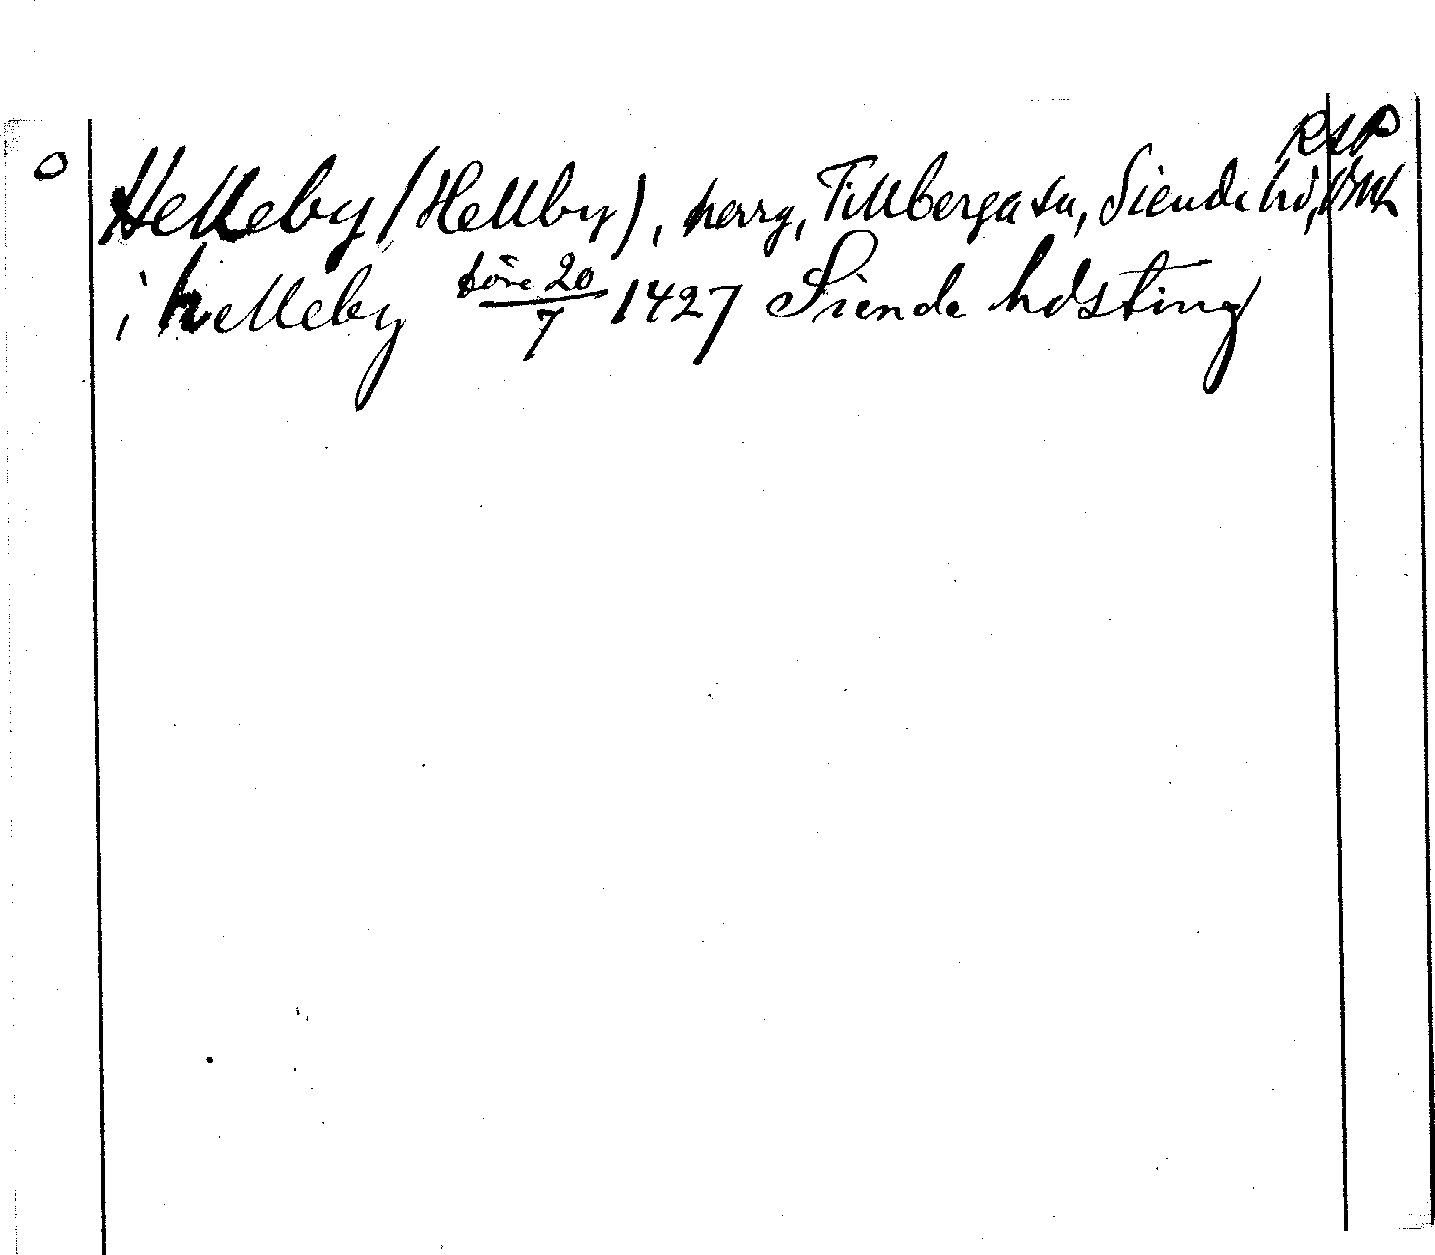 RAP
Helleby (Hellby), herrg, Tillberga sn, Siende hd,
i helleby före 20/7 1427 Siende hdsting